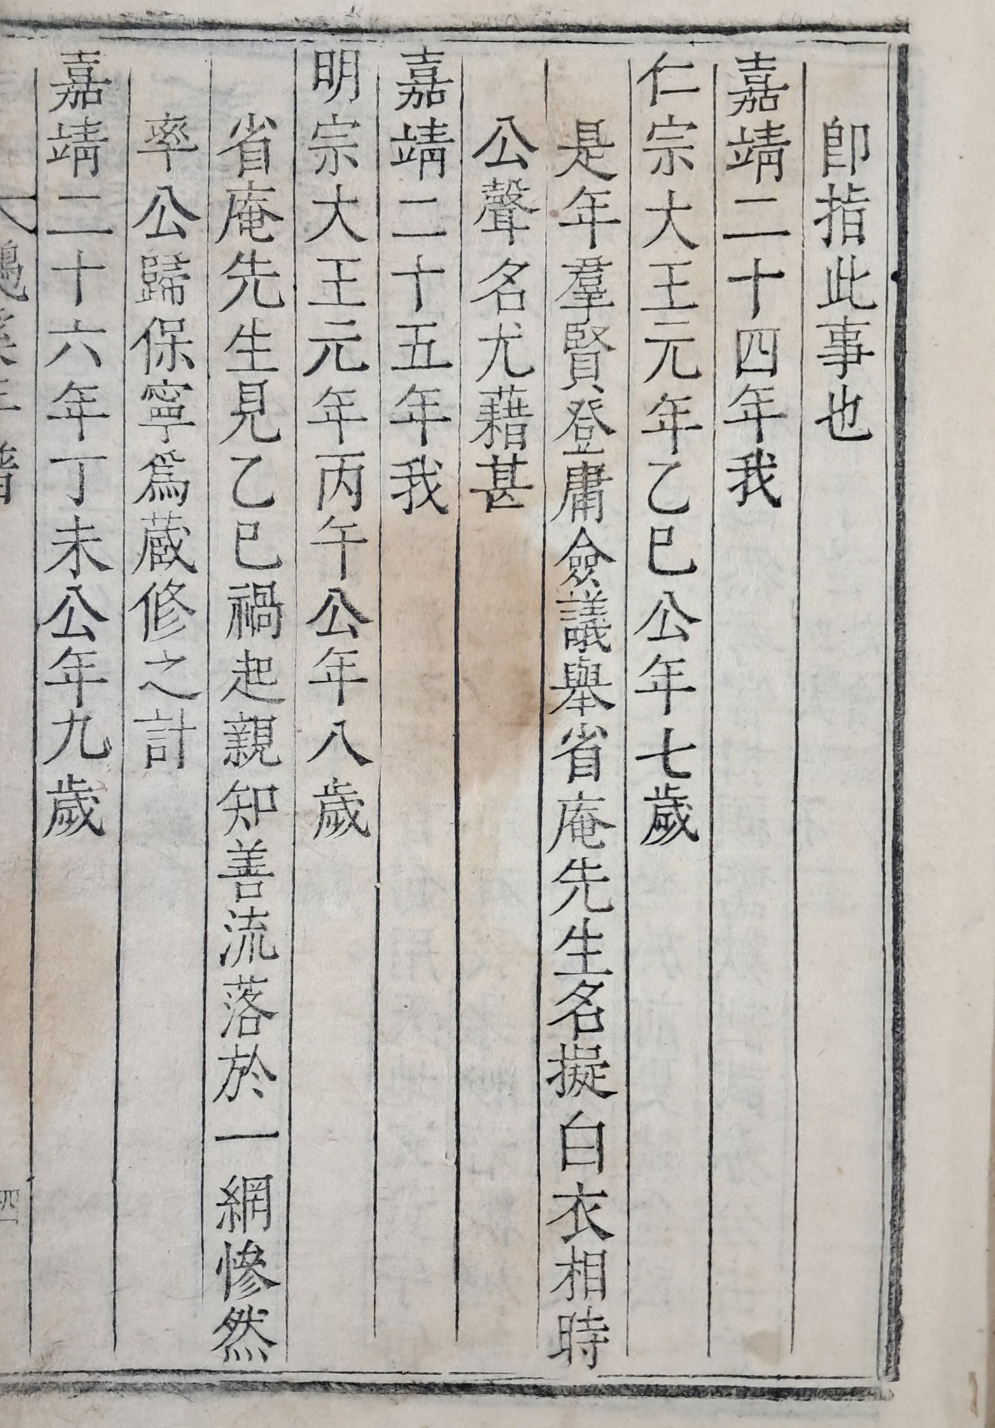 卽指此事也
嘉靖二十四年我
仁宗大王元年乙巳公年七歲
是年羣賢登庸僉議舉省庵先生名擬白衣相時
公聲名尤藉甚
嘉靖二十五年我
明宗大王元年丙午公年八歲
省庵先生見乙巳禍起親知善流落於一網慘然
率公歸保寧爲蔵修之計
嘉靖二十六年丁未公年九歲